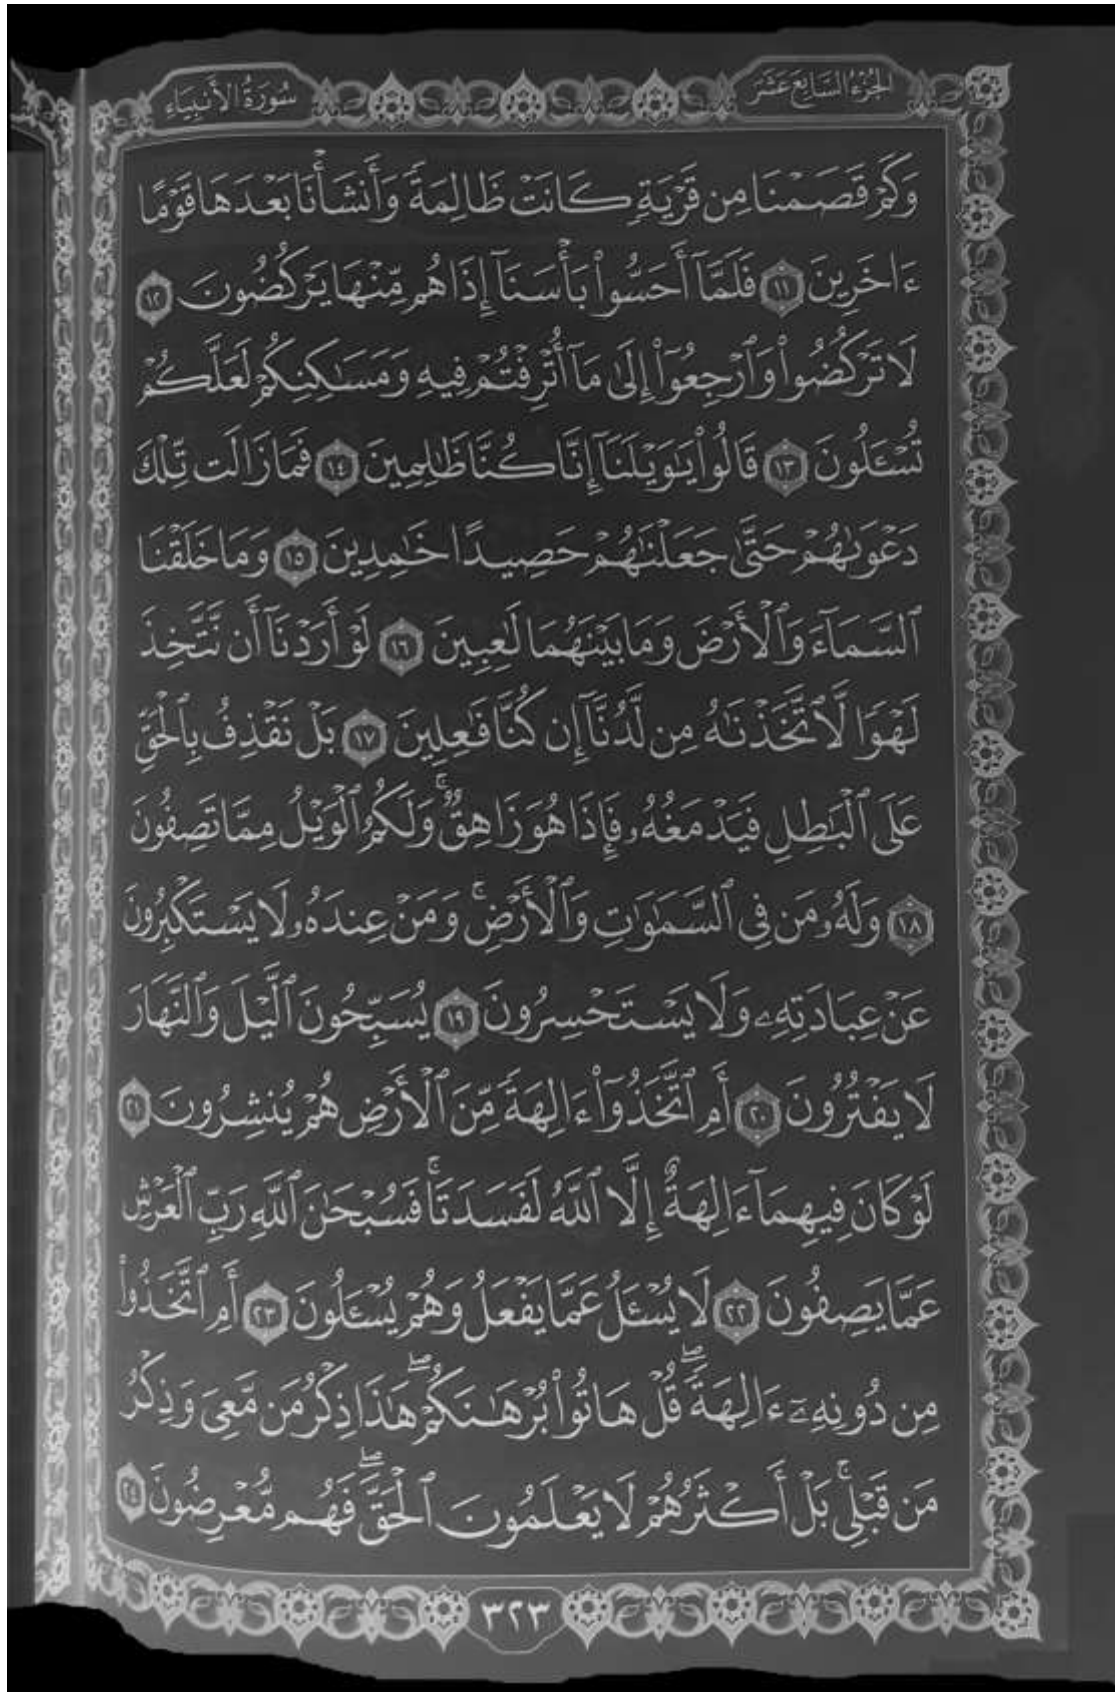 الجُزْءُ السَّابِعَ عَشَرَ
سُورَةُ الأَنبِيَاءِ
وَكَمْ قَصَمْنَا مِن قَرْيَةٍ كَانَتْ ظَالِمَةً وَأَنشَأْنَا بَعْدَهَا قَوْمًا
ءَاخَرِينَ ١١ فَلَمَّآ أَحَسُّوا۟ بَأْسَنَآ إِذَا هُم مِّنْهَا يَرْكُضُونَ ١٢
لَا تَرْكُضُوا۟ وَٱرْجِعُوٓا۟ إِلَىٰ مَآ أُتْرِفْتُمْ فِيهِ وَمَسَـٰكِنِكُمْ لَعَلَّكُمْ
تُسْـَٔلُونَ ١٣ قَالُوا۟ يَـٰوَيْلَنَآ إِنَّا كُنَّا ظَـٰلِمِينَ ١٤ فَمَا زَالَت تِّلْكَ
دَعْوَىٰهُمْ حَتَّىٰ جَعَلْنَـٰهُمْ حَصِيدًا خَـٰمِدِينَ ١٥ وَمَا خَلَقْنَا
ٱلسَّمَآءَ وَٱلْأَرْضَ وَمَا بَيْنَهُمَا لَـٰعِبِينَ ١٦ لَوْ أَرَدْنَآ أَن نَّتَّخِذَ
لَهْوًا لَّٱتَّخَذْنَـٰهُ مِن لَّدُنَّآ إِن كُنَّا فَـٰعِلِينَ ١٧ بَلْ نَقْذِفُ بِٱلْحَقِّ
عَلَى ٱلْبَـٰطِلِ فَيَدْمَغُهُۥ فَإِذَا هُوَ زَاهِقٌ ۚ وَلَكُمُ ٱلْوَيْلُ مِمَّا تَصِفُونَ
١٨ وَلَهُۥ مَن فِى ٱلسَّمَـٰوَٰتِ وَٱلْأَرْضِ ۚ وَمَنْ عِندَهُۥ لَا يَسْتَكْبِرُونَ
عَنْ عِبَادَتِهِۦ وَلَا يَسْتَحْسِرُونَ ١٩ يُسَبِّحُونَ ٱلَّيْلَ وَٱلنَّهَارَ
لَا يَفْتُرُونَ ٢٠ أَمِ ٱتَّخَذُوٓا۟ ءَالِهَةً مِّنَ ٱلْأَرْضِ هُمْ يُنشِرُونَ ٢١
لَوْ كَانَ فِيهِمَآ ءَالِهَةٌ إِلَّا ٱللَّهُ لَفَسَدَتَا ۚ فَسُبْحَـٰنَ ٱللَّهِ رَبِّ ٱلْعَرْشِ
عَمَّا يَصِفُونَ ٢٢ لَا يُسْـَٔلُ عَمَّا يَفْعَلُ وَهُمْ يُسْـَٔلُونَ ٢٣ أَمِ ٱتَّخَذُوا۟
مِن دُونِهِۦٓ ءَالِهَةً ۖ قُلْ هَاتُوا۟ بُرْهَـٰنَكُمْ ۖ هَـٰذَا ذِكْرُ مَن مَّعِىَ وَذِكْرُ
مَن قَبْلِى ۚ بَلْ أَكْثَرُهُمْ لَا يَعْلَمُونَ ٱلْحَقَّ ۖ فَهُم مُّعْرِضُونَ ٢٤
٣٢٣